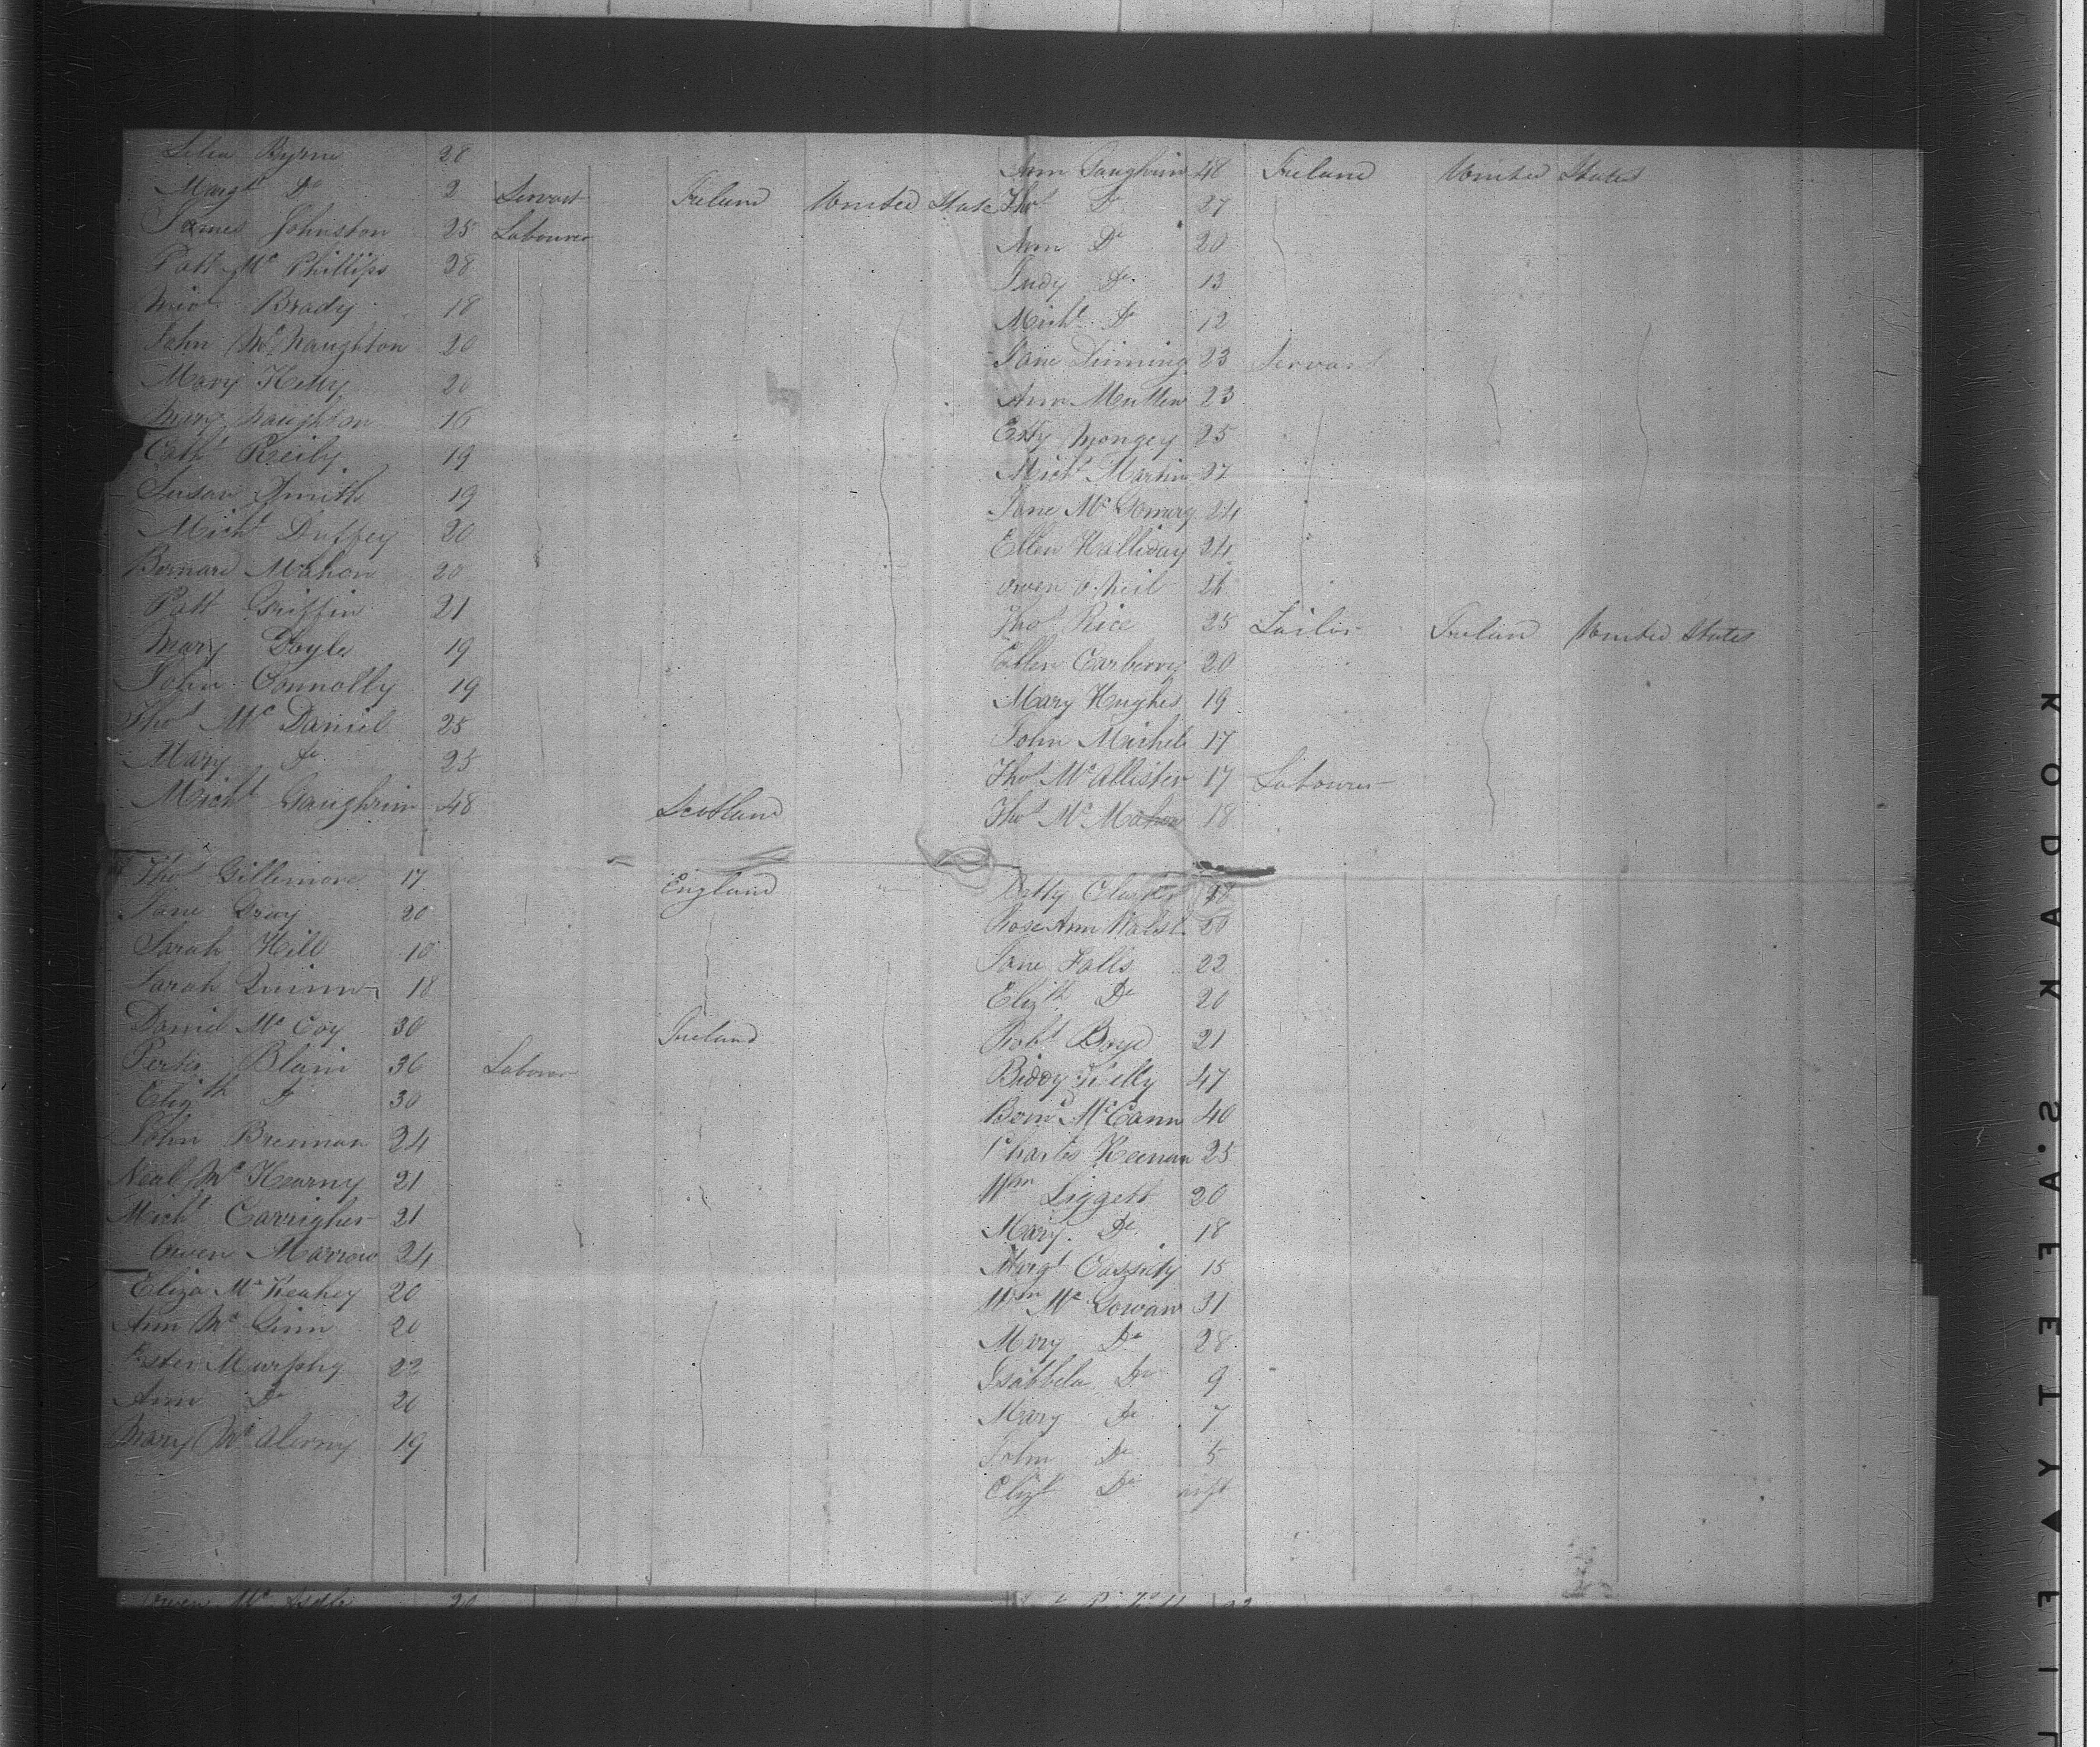 Byrne 28
Margt Do 2 Servant Ireland United States
James Johnston 25 Labourer
Patt Mc Phillips 28
Brady 18
John Mc Naughton 20
Mary Kelly 20
Mary Naughton 16
Cath Reily 19
Susan Smith 19
Michl Duffey 20
Bernard Mahon 20
Patt Griffin 21
Mary Doyle 19
John Connolly 19
Thos Mc Daniel 25
Mary Do 25
Michl Gaughrin 48 Scotland
Thos Gillemore 17 England
Jane Gray 20
Sarah Hill 10
Sarah Quinn 18
Daniel Mc Coy 30 Ireland
Peter Blain 36 Labourer
Elizth Do 30
John Brennan 24
Neal Mc Kearny 21
Michl Carrigher 21
Owen Marrow 24
Eliza Mc 20
Ann Mc Ginn 20
Murphy 22
Ann Do 20
Mary Mc 19
Owen Mc 20
Ann Gaughrin 48 Ireland United States
Thos Do 27
Ann Do 20
Judy Do 13
Michl Do 12
Jane Dinning 23 Servant
Ann Mullen 23
Mongey 25
Michl Martin 27
Jane Mc 24
Ellen Halliday 24
Owen O.Neil 26
Thos Rice 25 Tailor Ireland United States
Ellen Carberry 20
Mary Hughes 19
John Michel 17
Thos Mc Allister 17 Labourer
Thos Mc Mahon 18
Betty
Rose Ann 20
Jane Falls 22
Elizth Do 20
Robt Boyd 21
Biddy Kelly 47
Mc Cann 40
Charles Keenan 25
Wm Liggett 20
Mary Do 18
Margt Cassidy 15
Wm Mc Gowan 31
Mary Do 28
Isabbela Do 9
Mary Do 7
John Do 5
Elizt Do inft
KODAK
S.A.FETY